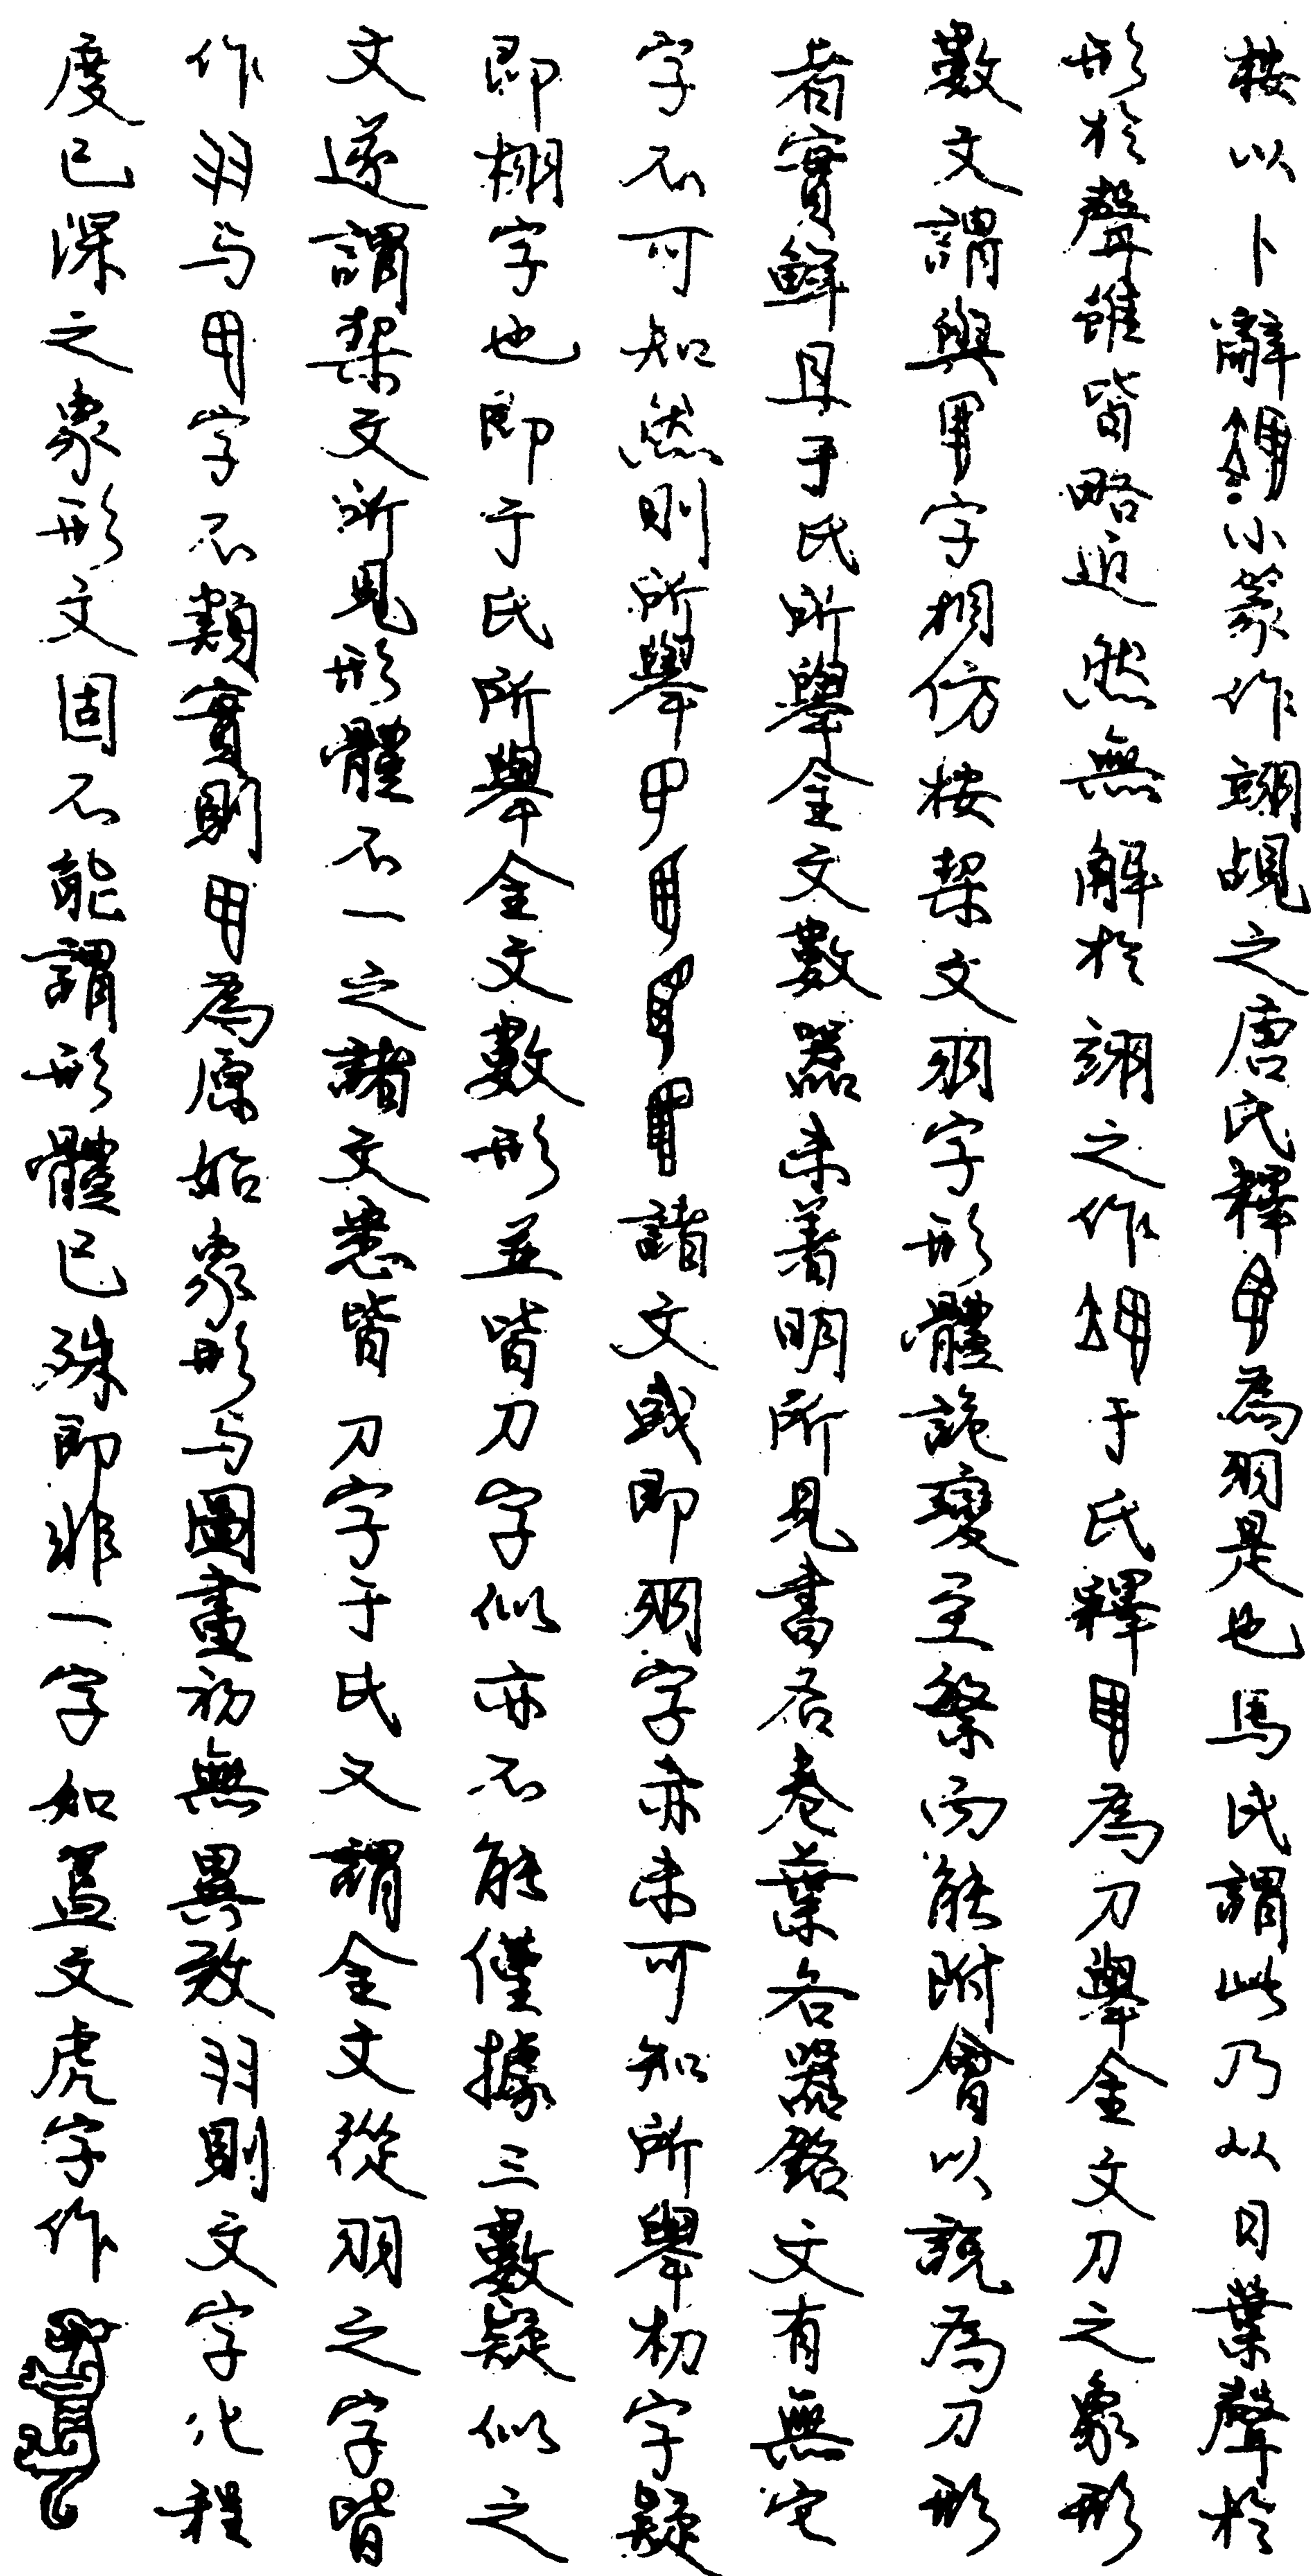 按以卜辭小篆作翊覘之唐氏釋為羽是也馬氏謂此乃从日葉聲於
形於聲雖皆略近然無解於翊之作于氏釋為刀舉金文刀之象形
數文謂與字相仿按栔文羽字形體詭變至緐而能附會以說為刀形
者實鮮且于氏所舉金文數器未著明所見書名卷葉各器銘文有無它
字不可知然則所舉諸文或即羽字亦未可知所舉朷字疑
即栩字也即于氏所舉金文數形並皆刀字似亦不能僅據三數疑似之
文遂謂栔文所見形體不一之諸文悉皆刀字于氏又謂金文從羽之字皆
作羽与字不類實則為原始象形与圖畫初無異致羽則文字化程
度已深之象形文固不能謂形體已殊即非一字如盂文虎字作